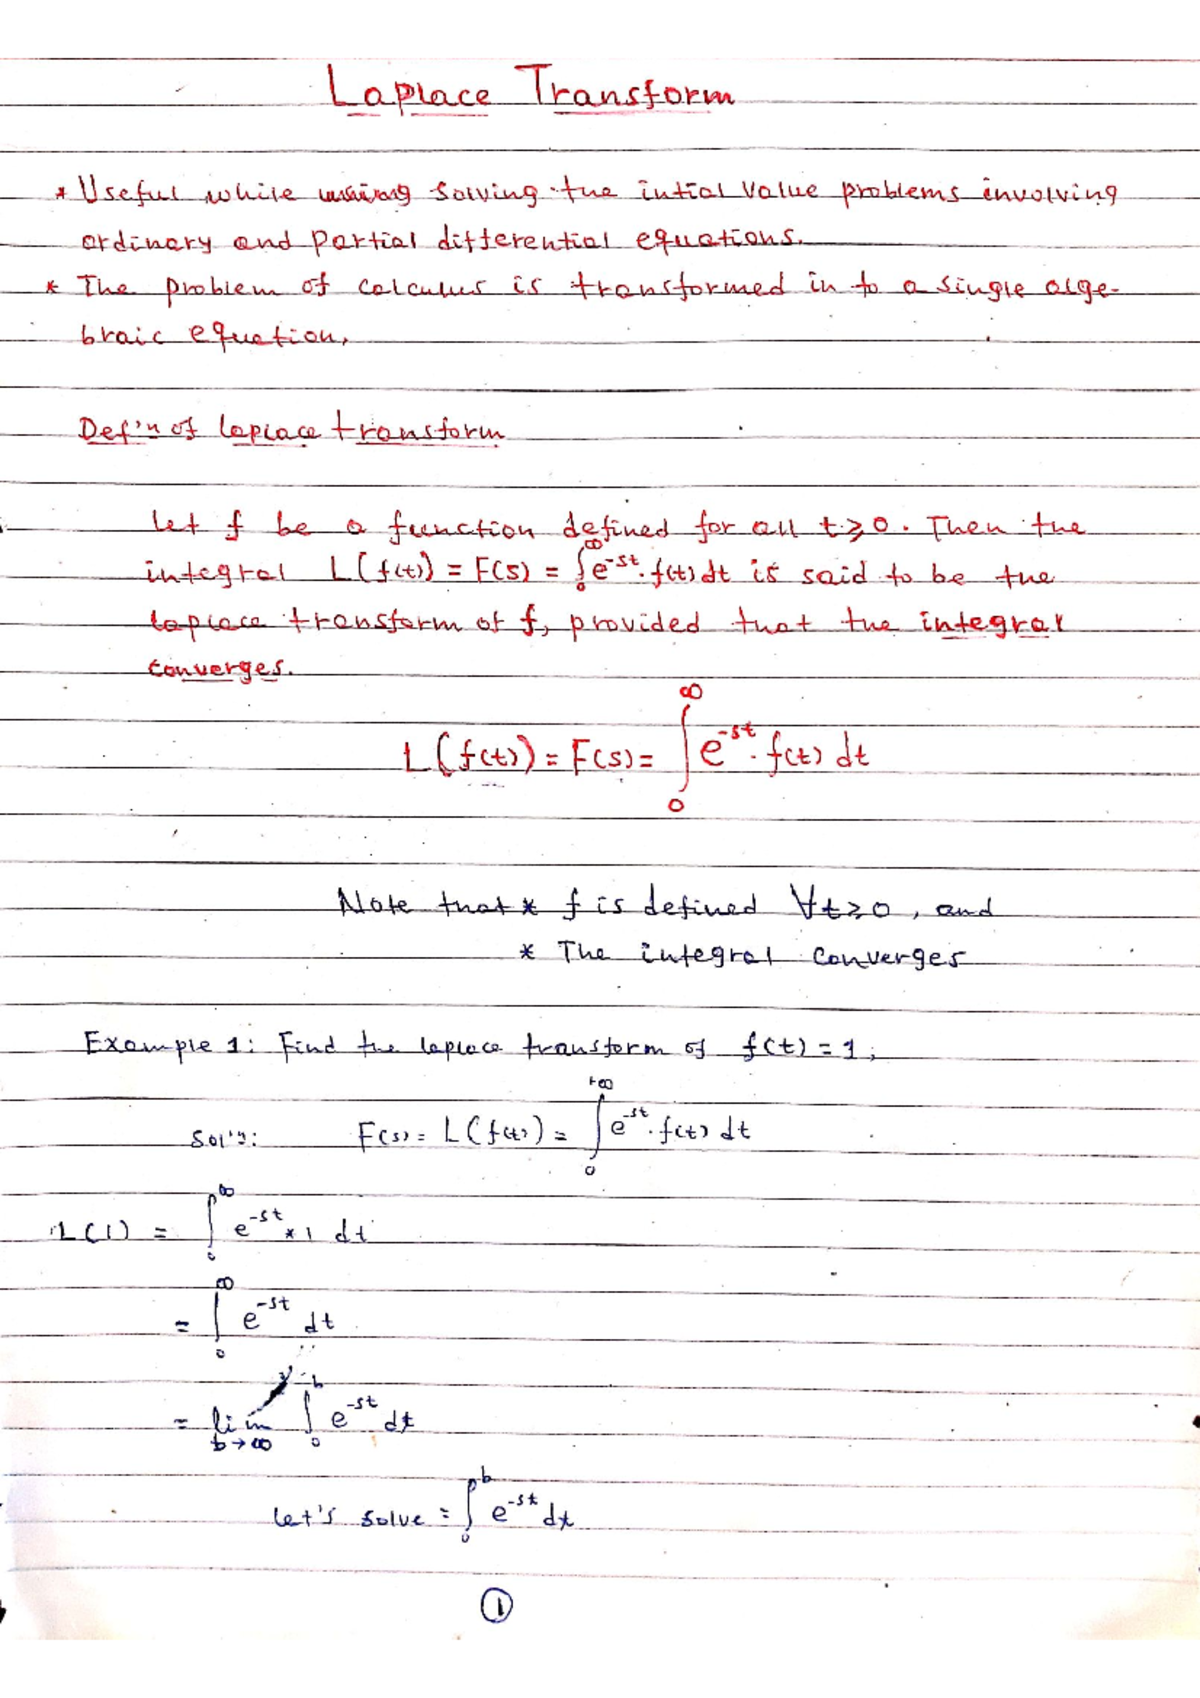 Laplace Transform
* Useful while solving the intial value problems involving
ordinary and partial differential equations.
* The problem of calculus is transformed in to a single alge-
braic equation.
Def'n of laplace transform
Let f be a function defined for all t ≥ 0. Then the
integral L(f(t)) = F(s) = ∫₀^∞ e^-st . f(t) dt is said to be the
laplace transform of f, provided that the integral
converges.
L(f(t)) = F(s) = ∫₀^∞ e^-st . f(t) dt
Note that * f is defined ∀t≥0, and
* The integral converges
Example 1: Find the laplace transform of f(t) = 1,
Sol'n: F(s) = L(f(t)) = ∫₀^+∞ e^-st . f(t) dt
L(1) = ∫₀^∞ e^-st * 1 dt
= ∫₀^∞ e^-st dt
= lim b→∞ ∫₀^b e^-st dt
Let's solve = ∫₀^b e^-st dt
1